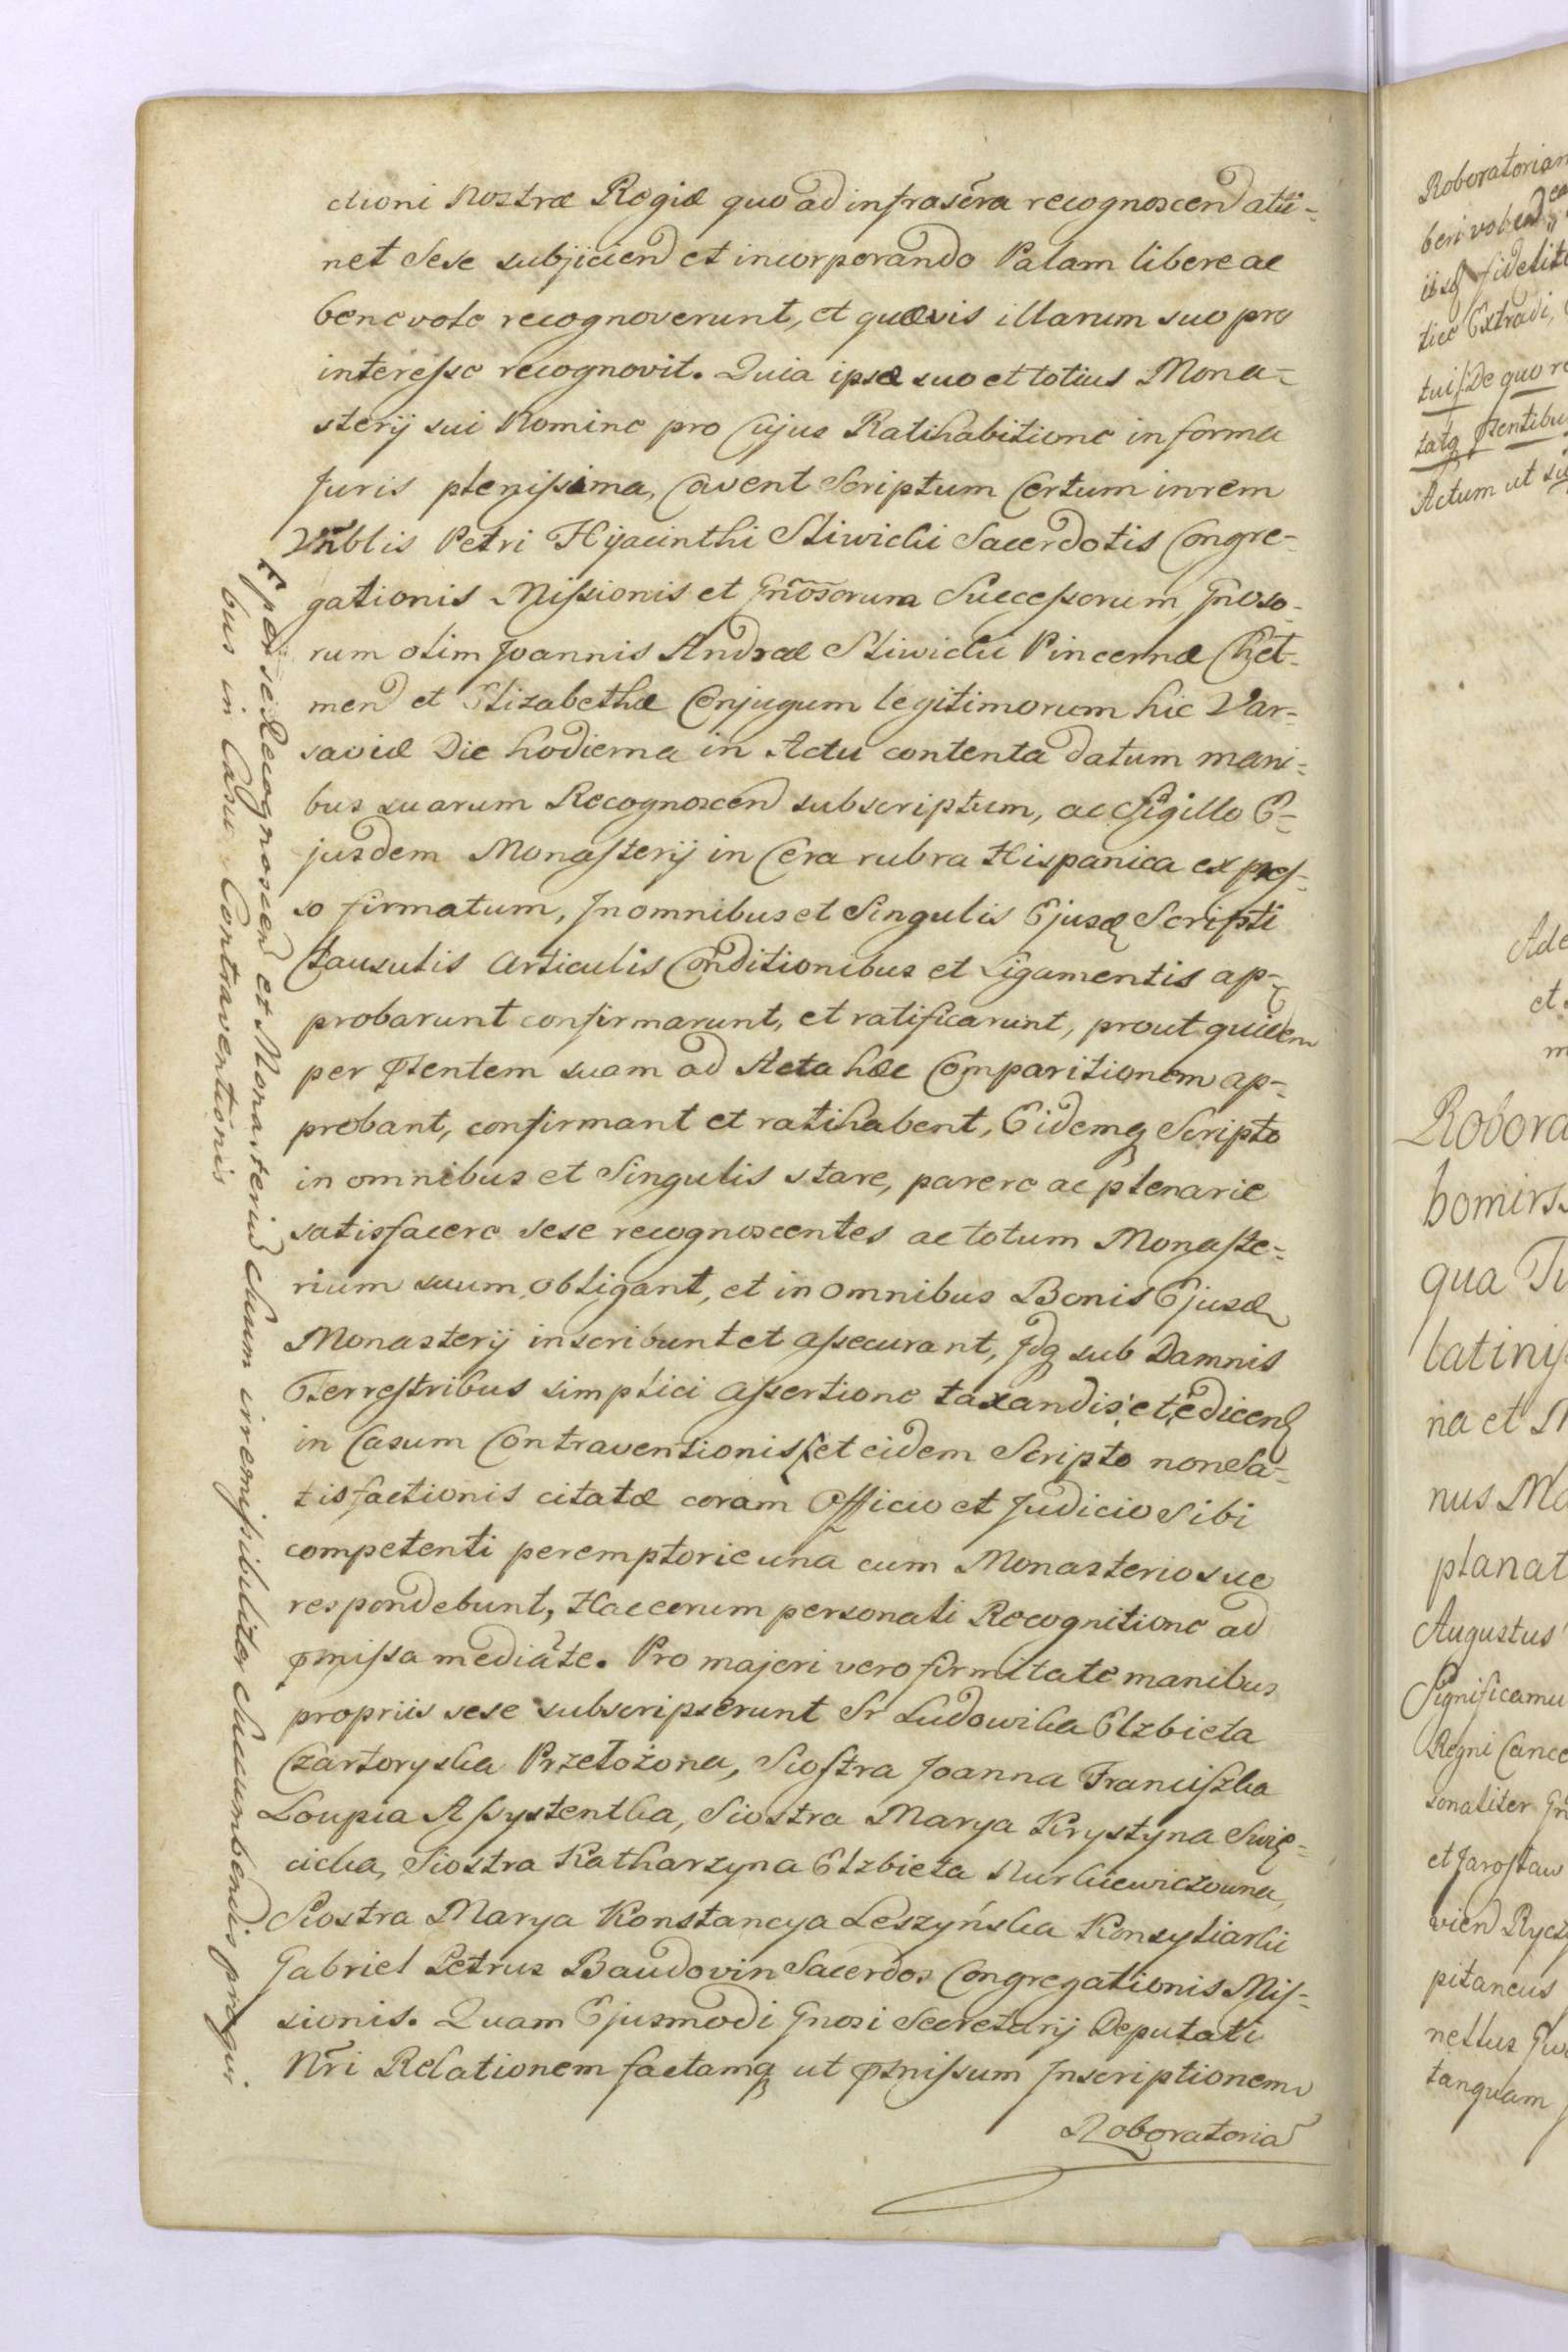 ctioni Nostræ Regiæ quo ad infrascr̃a recognoscend atti-
net Sese subjiciend et incorporando Palam libere ac
benevole recognoverunt, et quævis illarum suo pro
interesse recognovit. Quia ipsæ suo et totius Mona-
sterij sui Nomine pro Cujus Ratihabitione in forma
Juris plenissima, Cavent Scriptum Certum in rem
Vnblis Petri Hyacinthi Sliwicki Sacerdotis Congre-
gationis Missionis et Gñosorum Successorum Gnoso-
rum olim Joannis Andreæ Sliwicki Pincernæ Chel-
men et Elizabethæ Conjugum legitimorum hic Var-
saviæ Die hodierna in Actu contenta datum mani-
bus suarum Recognoscen subscriptum, ac Sigillo E-
jusdem Monasterij in Cera rubra Hispanica expres-
so firmatum, In omnibus et Singulis Ejusd Scripti
Clausulis Articulis Conditionibus et Ligamentis ap-
probarunt confirmarunt, et ratificarunt, prout quidem
per pñtentem suam ad Acta hæc Comparitionem ap-
probant, confirmant et ratihabent, Eidemq Scripto
in omnibus et Singulis stare, parere ac plenarie
satisfacere sese recognoscentes ac totum Monaste-
rium suum obligant, et in omnibus Bonis Ejusd
Monasterij inscribunt et assecurant, Idq sub Damnis
Terrestribus simplici assertione taxandis, et edicend
in Casum Contraventionis et eidem Scripto non Sa-
tisfactionis citatæ coram Officio et Judicio Sibi
competenti peremptorie una cum Monasterio suo
respondebunt, Hac eorum personali Recognitione ad
pmissa mediãte. Pro majori vero firmitate manibus
propriis sese subscripserunt Sr Ludowika Elzbieta
Czartoryska Przełożona, Siostra Joanna Franciszka
Loupia Assystentka, Siostra Marya Krystyna Swię-
cicka, Siostra Katharzyna Elzbieta Nurkiewiczowna,
Siostra Marya Konstancya Leszyńska Konsyliarki
Gabriel Petrus Baudovin Sacerdos Congregationis Mis-
sionis. Quam Ejusmodi Gnosi Secretarij Deputati
Nr̃i Relationem factamq ut pmissum Inscriptionem
Roboratoria
per se Recognoscen et Monasteriu Suum irremissibiliter Succumbendis pro qui-
bus in Casu Contraventionis
Roboratoriam
beri
iisq fidelite
Extradi,
tuis De quo
Actum ut
Ade
et
m
Robora
bomirs
qua
latini
na et
nus
planat
Augustus
Significamu
Regni Cance
sonaliter
et Jarosław
vien
pitaneus
tanquam